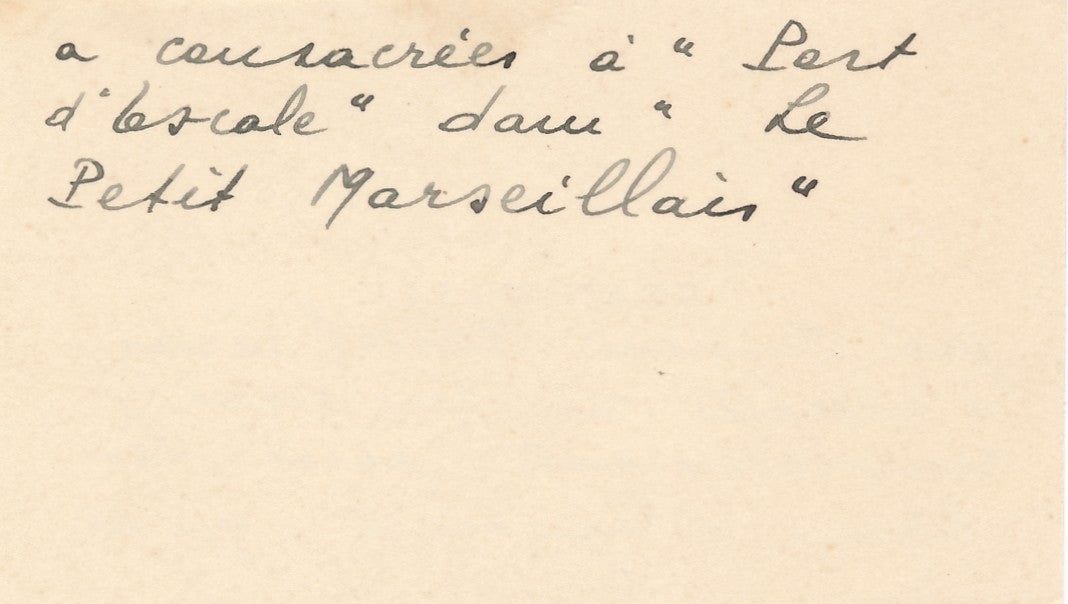 a consacrées à " Port
d'Escale " dans " Le
Petit Marseillais "